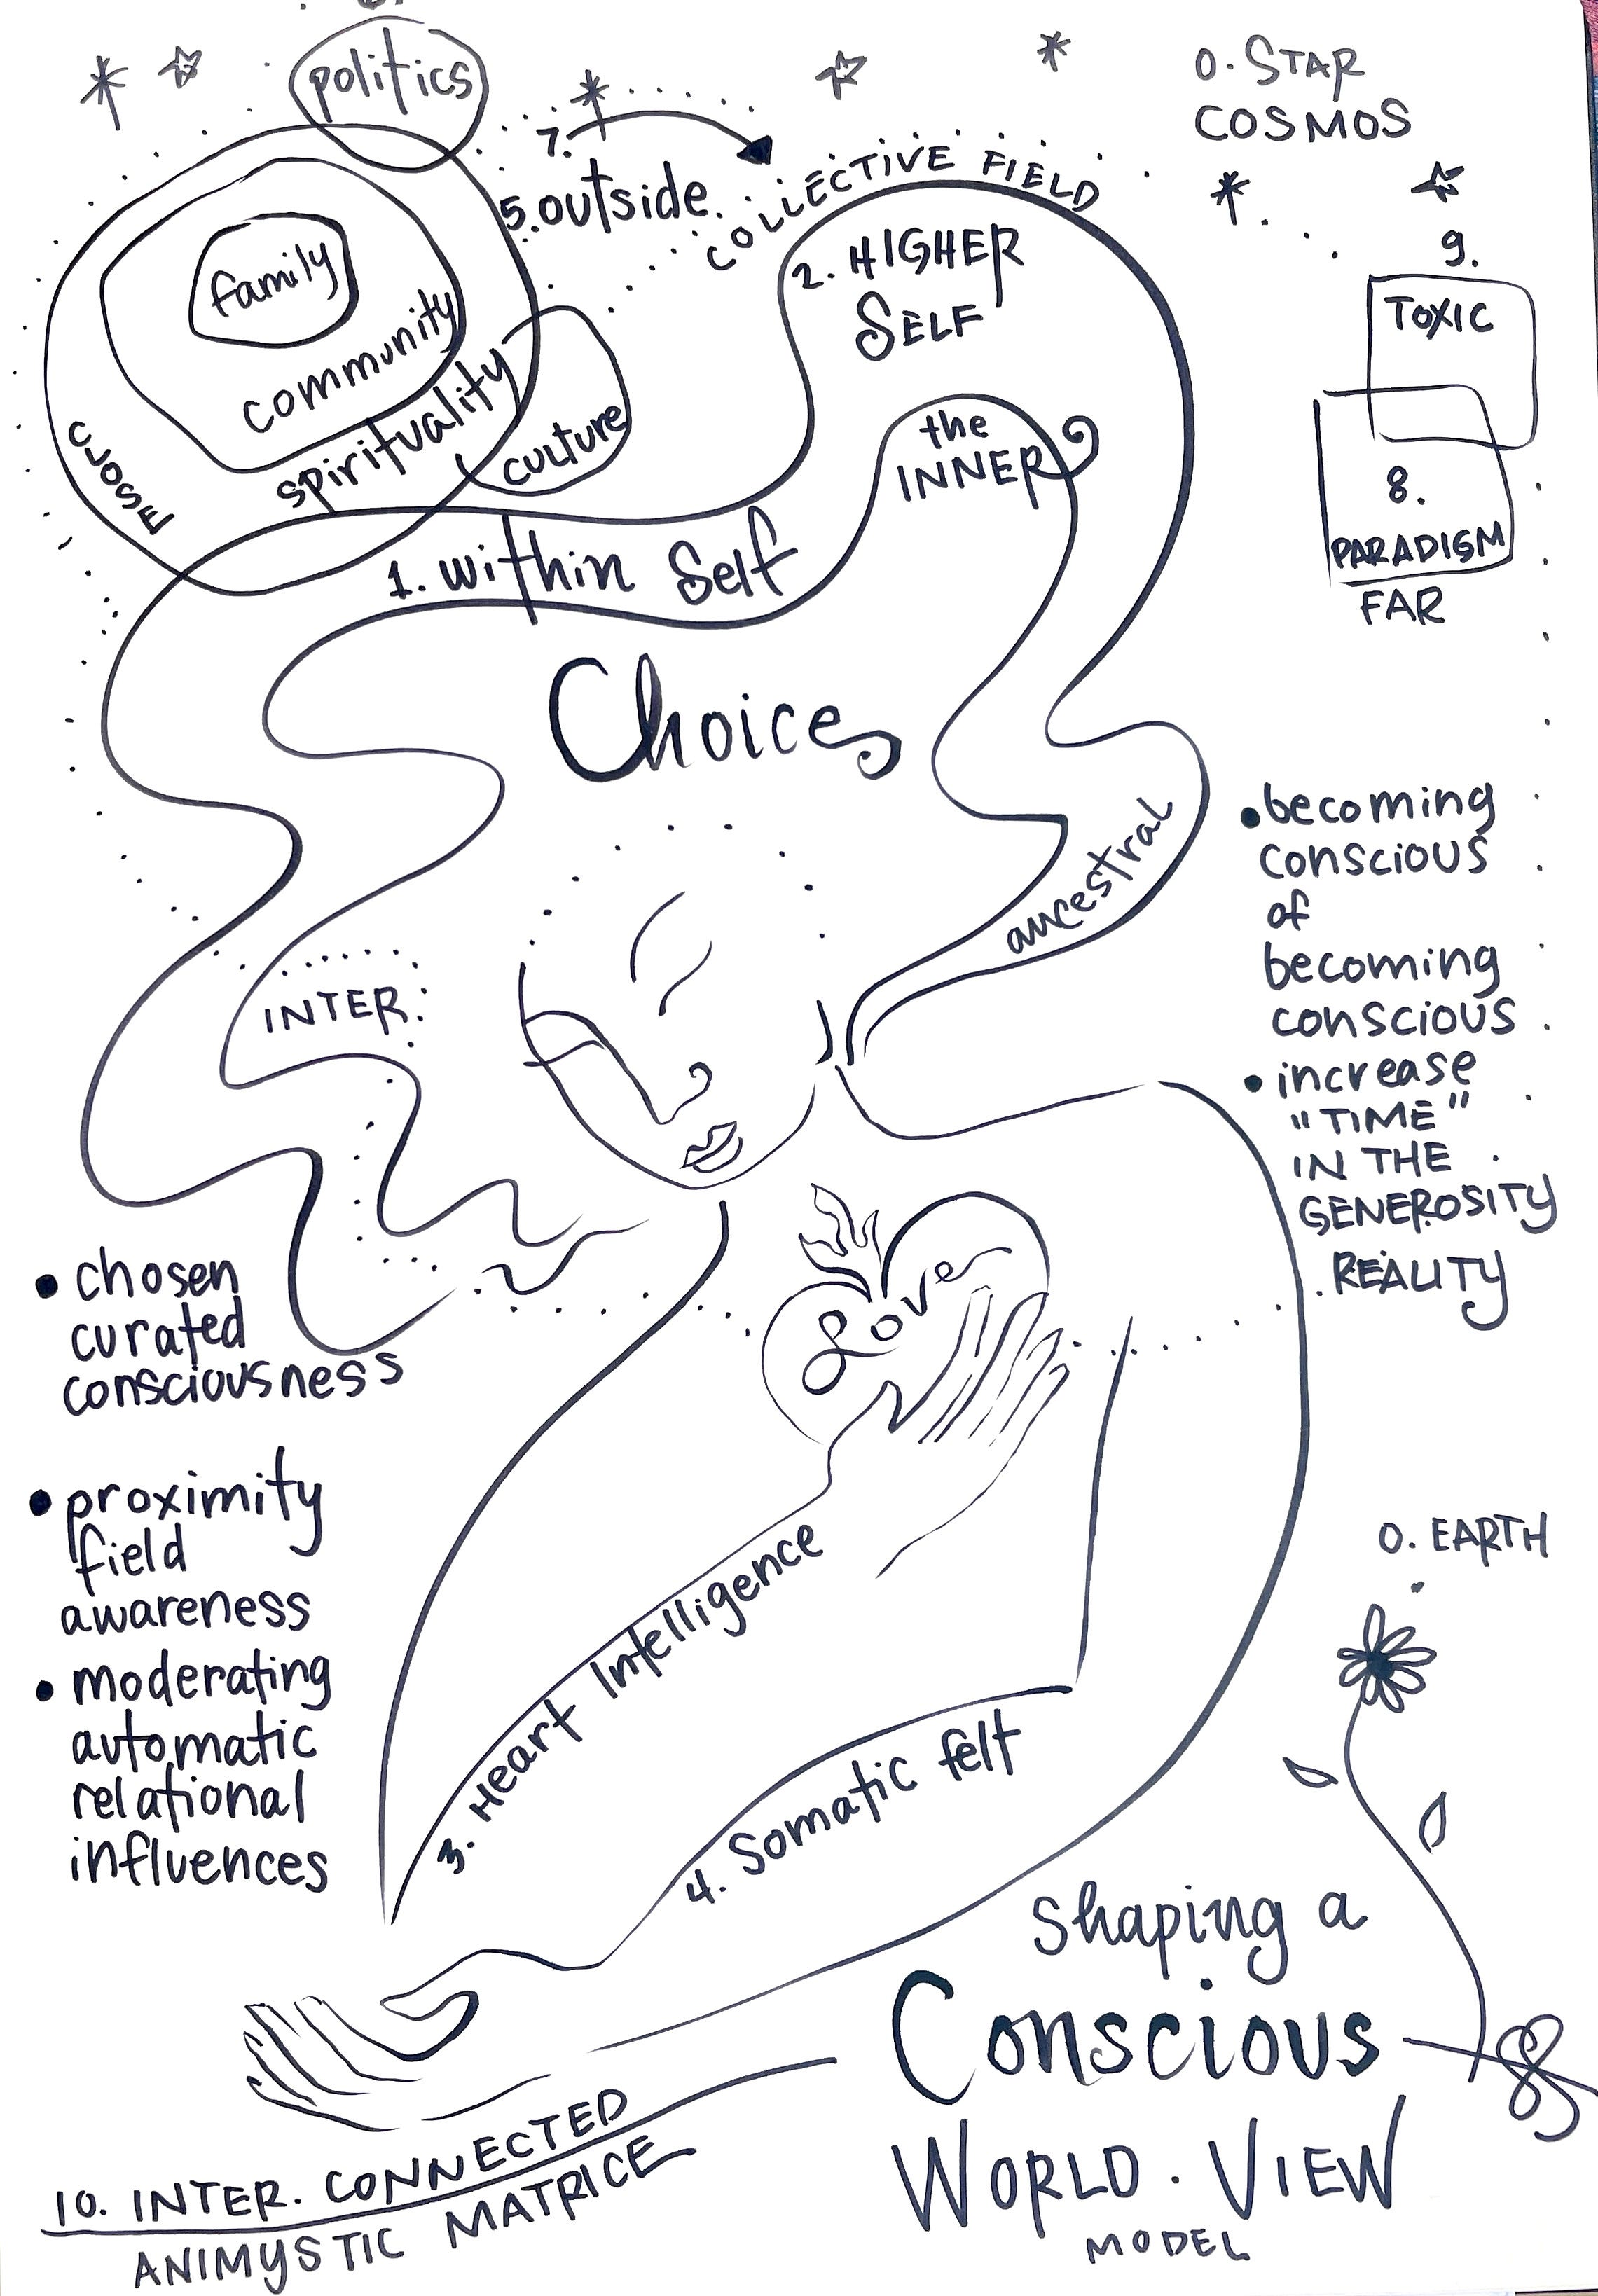 politics
O. STAR
COSMOS
7.
5. outside.
COLLECTIVE FIELD
family
community
spirituality
culture
CLOSE
2. HIGHER
SELF
the
INNER
9.
TOXIC
8.
PARADIGM
FAR
1. within Self
Choices
ancestral
INTER:
• becoming
conscious
of
becoming
conscious
• increase
"TIME"
IN THE
GENEROSITY
REALITY
• chosen
curated
consciousness
• proximity
field
awareness
• moderating
automatic
relational
influences
Love
3. Heart Intelligence
4. Somatic felt
O. EARTH
Shaping a
Conscious
WORLD. VIEW
MODEL
10. INTER. CONNECTED
ANIMYSTIC MATRICE